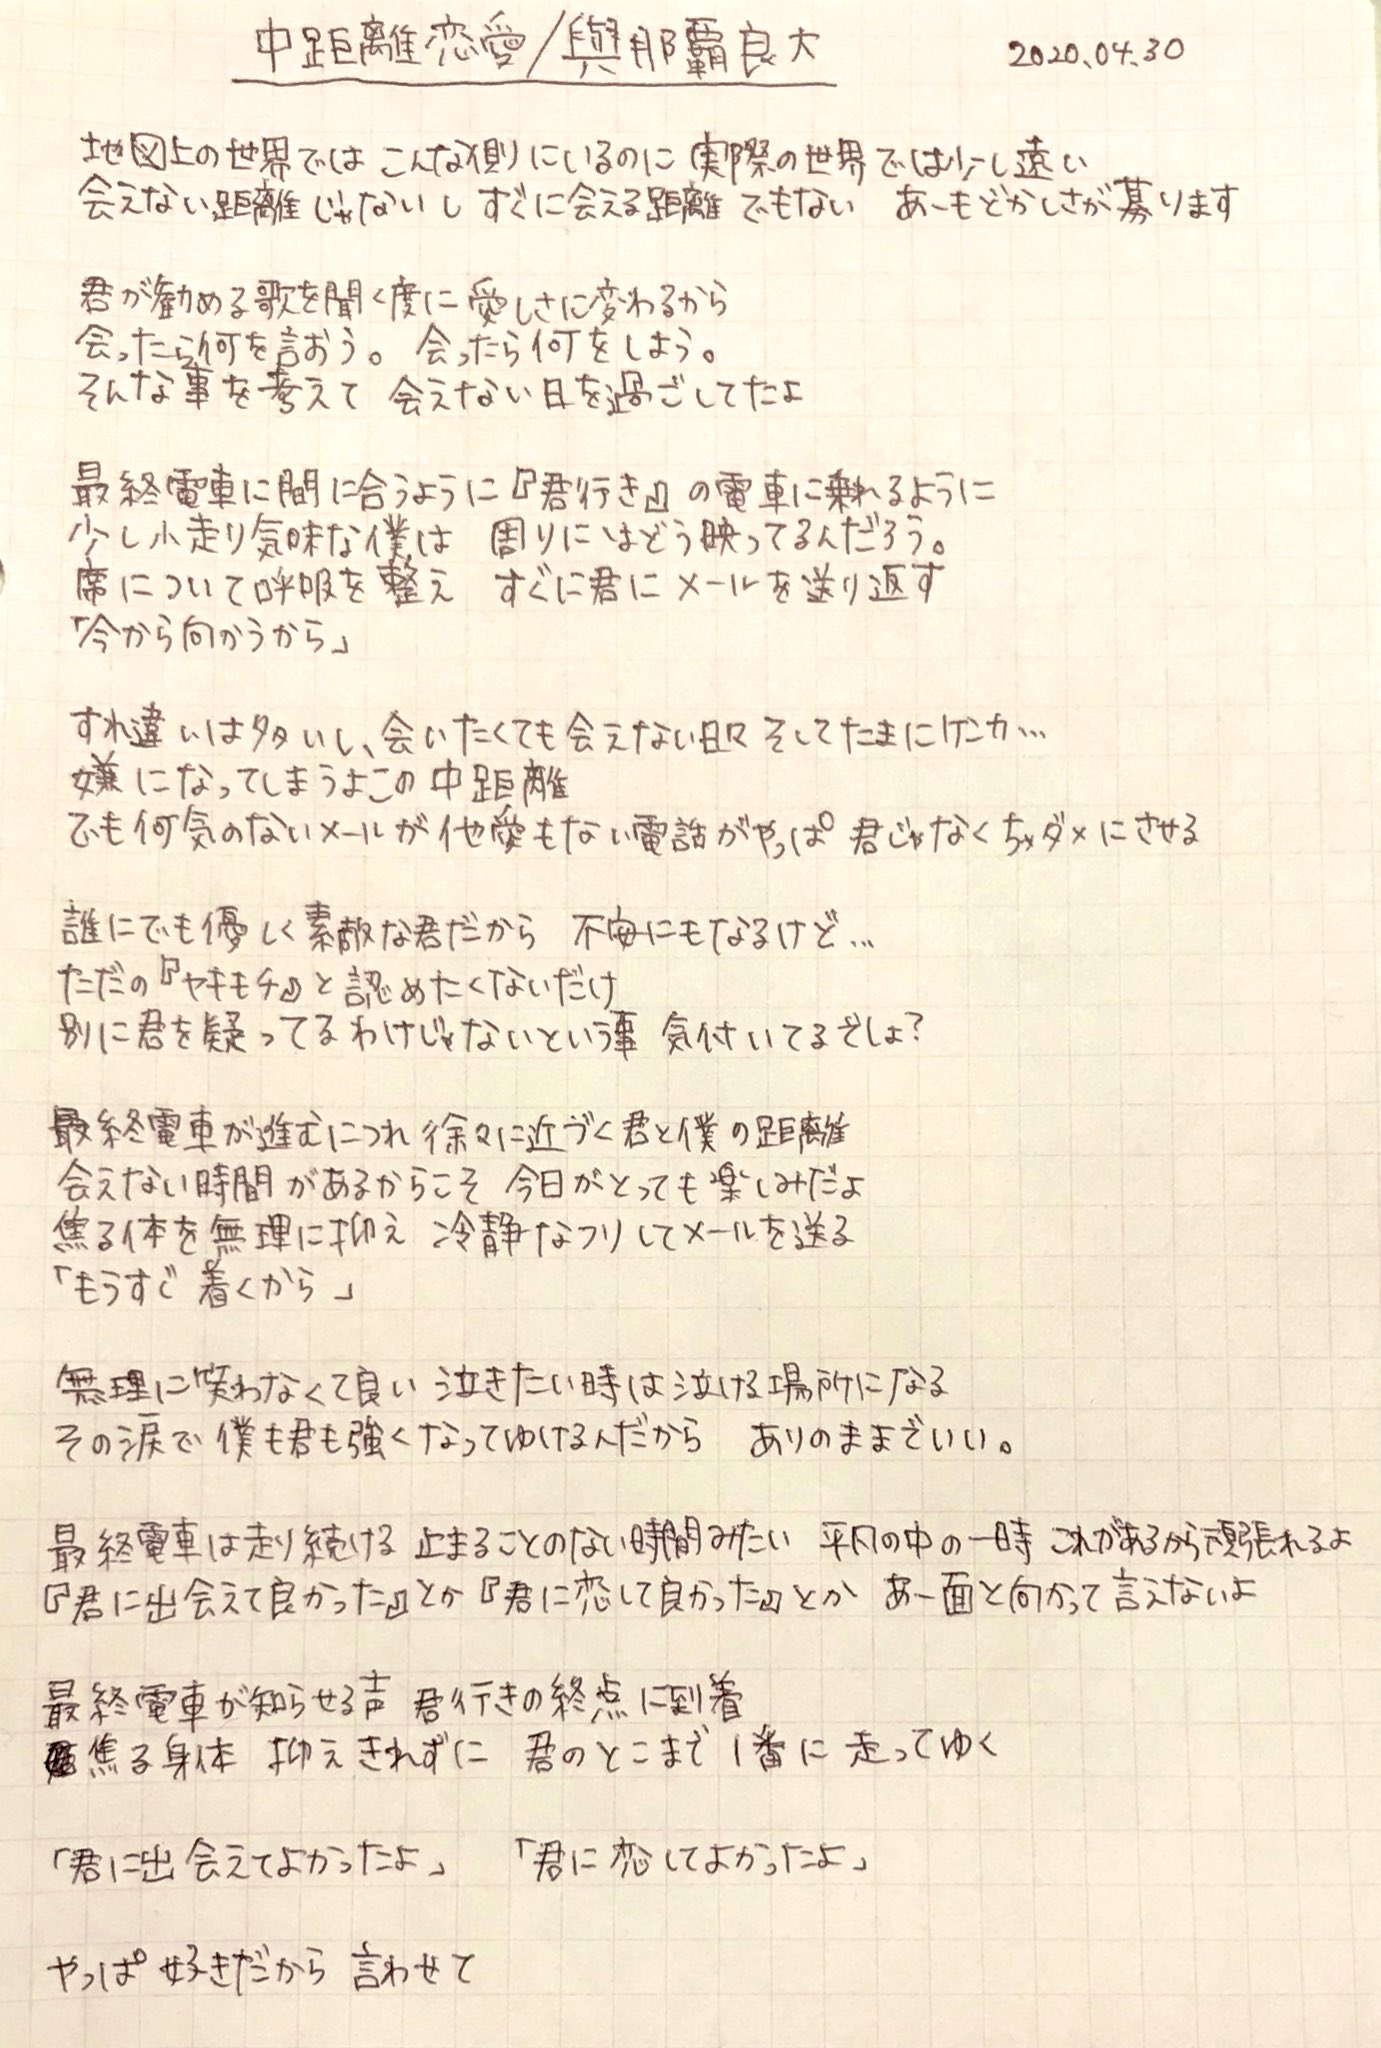 中距離恋愛/與那覇良大 2020.04.30
地図上の世界では こんな側にいるのに 実際の世界では少し遠い
会えない距離じゃないし すぐに会える距離でもない あーもどかしさが募ります
君が勧める歌を聞く度に 愛しさに変わるから
会ったら何を言おう。 会ったら何をしよう。
そんな事を考えて 会えない日を過ごしてたよ
最終電車に間に合うように『君行き』の電車に乗れるように
少し小走り気味な僕は 周りにはどう映ってるんだろう。
席について呼吸を整え すぐに君にメールを送り返す
「今から向かうから」
すれ違いは多いし、会いたくても会えない日々 そしてたまにケンカ…
嫌になってしまうよこの中距離
でも何気のないメールが他愛もない電話がやっぱ 君じゃなくちゃダメにさせる
誰にでも優しく素敵な君だから 不安にもなるけど…
ただの『ヤキモチ』と認めたくないだけ
別に君を疑ってるわけじゃないという事 気付いてるでしょ?
最終電車が進むにつれ 徐々に近づく君と僕の距離
会えない時間があるからこそ 今日がとっても楽しみだよ
焦る体を無理に抑え 冷静なフリしてメールを送る
「もうすぐ着くから」
無理に笑わなくて良い 泣きたい時は泣ける場所になる
その涙で僕も君も強くなってゆけるんだから ありのままでいい。
最終電車は走り続ける 止まることのない時間みたい 平凡の中の一時 これがあるから頑張れるよ
『君に出会えて良かった』とか『君に恋して良かった』とか あー面と向かって言えないよ
最終電車が知らせる声 君行きの終点に到着
焦る身体 抑えきれずに 君のとこまで1番に走ってゆく
「君に出会えてよかったよ」 「君に恋してよかったよ」
やっぱ好きだから 言わせて